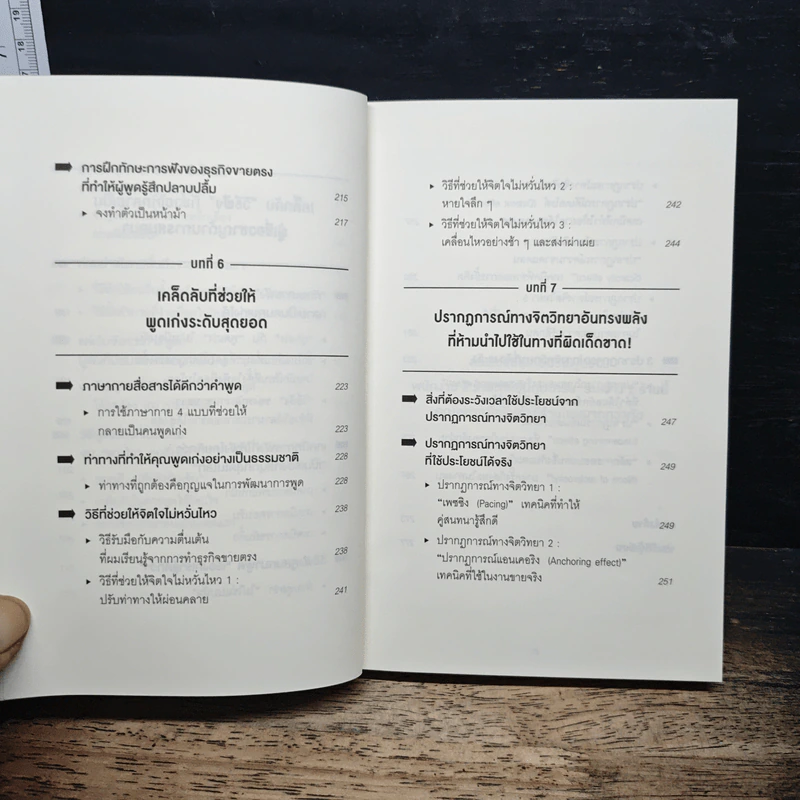 การฝึกทักษะการฟังของธุรกิจขายตรง
ที่ทำให้ผู้พูดรู้สึกปลาบปลื้ม 215
จงทำตัวเป็นหน้าม้า 217
บทที่ 6
เคล็ดลับที่ช่วยให้
พูดเก่งระดับสุดยอด
ภาษากายสื่อสารได้ดีกว่าคำพูด 223
การใช้ภาษากาย 4 แบบที่ช่วยให้
กลายเป็นคนพูดเก่ง 223
ท่าทางที่ทำให้คุณพูดเก่งอย่างเป็นธรรมชาติ 228
ท่าทางที่ถูกต้องคือกุญแจในการพัฒนาการพูด 228
วิธีที่ช่วยให้จิตใจไม่หวั่นไหว 238
วิธีรับมือกับความตื่นเต้น
ที่ผมเรียนรู้จากการทำธุรกิจขายตรง 238
วิธีที่ช่วยให้จิตใจไม่หวั่นไหว 1 :
ปรับท่าทางให้ผ่อนคลาย 241
วิธีที่ช่วยให้จิตใจไม่หวั่นไหว 2 :
หายใจลึก ๆ 242
วิธีที่ช่วยให้จิตใจไม่หวั่นไหว 3 :
เคลื่อนไหวอย่างช้า ๆ และสง่าผ่าเผย 244
บทที่ 7
ปรากฏการณ์ทางจิตวิทยาอันทรงพลัง
ที่ห้ามนำไปใช้ในทางที่ผิดเด็ดขาด!
สิ่งที่ต้องระวังเวลาใช้ประโยชน์จาก
ปรากฏการณ์ทางจิตวิทยา 247
ปรากฏการณ์ทางจิตวิทยา
ที่ใช้ประโยชน์ได้จริง 249
ปรากฏการณ์ทางจิตวิทยา 1 :
"เพซซิง (Pacing)" เทคนิคที่ทำให้
คู่สนทนารู้สึกดี 249
ปรากฏการณ์ทางจิตวิทยา 2 :
"ปรากฏการณ์แอนเคอริง (Anchoring effect)"
เทคนิคที่ใช้ในงานขายจริง 251
17
18
19